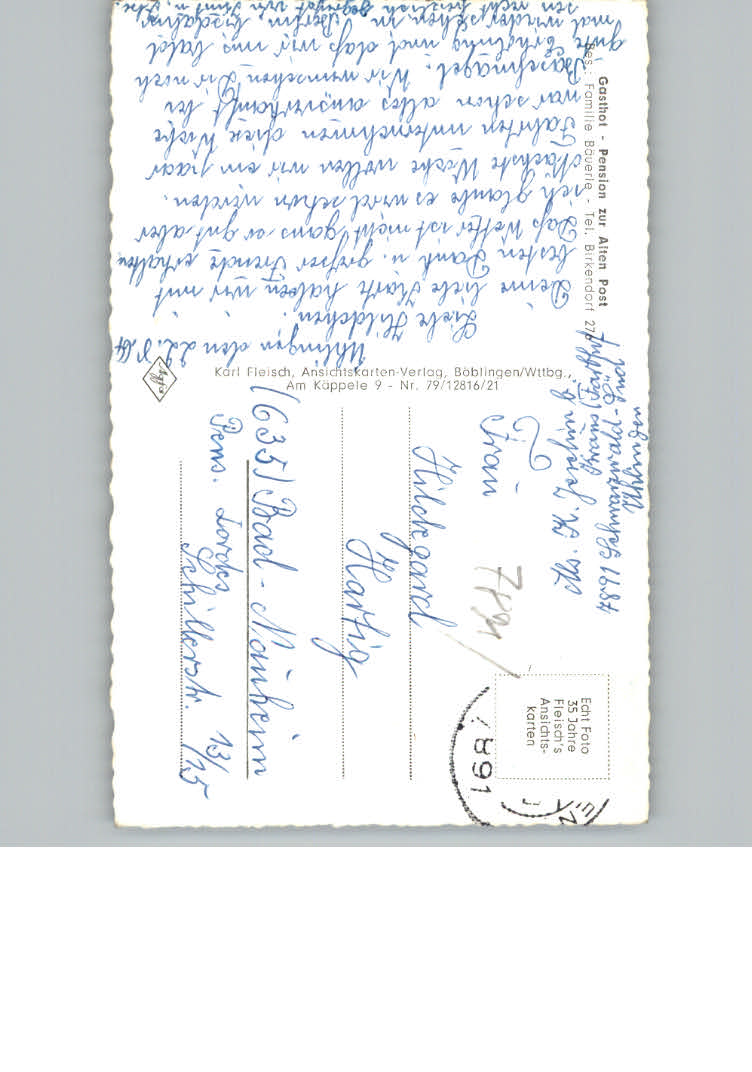 Gasthof - Pension zur Alten Post
Bes.: Familie Bäuerle - Tel. Birkendorf 27
Ühlingen den 22. 8. 64
Liebe Hildchen.
Deine liebe Karte haben wir mit
besten Dank u. großer Freude erhalten
Daß Wetter ist nicht ganz so gut aber
ich glaube es wird schon werden.
Nächste Woche wollen wir ein paar
Fahrten unternehmen diese Woche
war schon alles ausverkauft bei
Wir wünschen Dir noch
gute Erholung und daß wir uns bald
mal wiedersehen in Berlin bisdahin
sei recht herzlich gegrüßt von
Karl Fleisch, Ansichtskarten-Verlag, Böblingen/Wttbg.,
Am Käppele 9 - Nr. 79/12816/21
Abs.
7891
Ühlingen
Echt Foto
35 Jahre
Fleisch's
Ansichts-
karten
7891
Frau
Hildegard
Hartig
(635) Bad-Nauheim
Pens. Lorcks
Schillerstr. 13/15